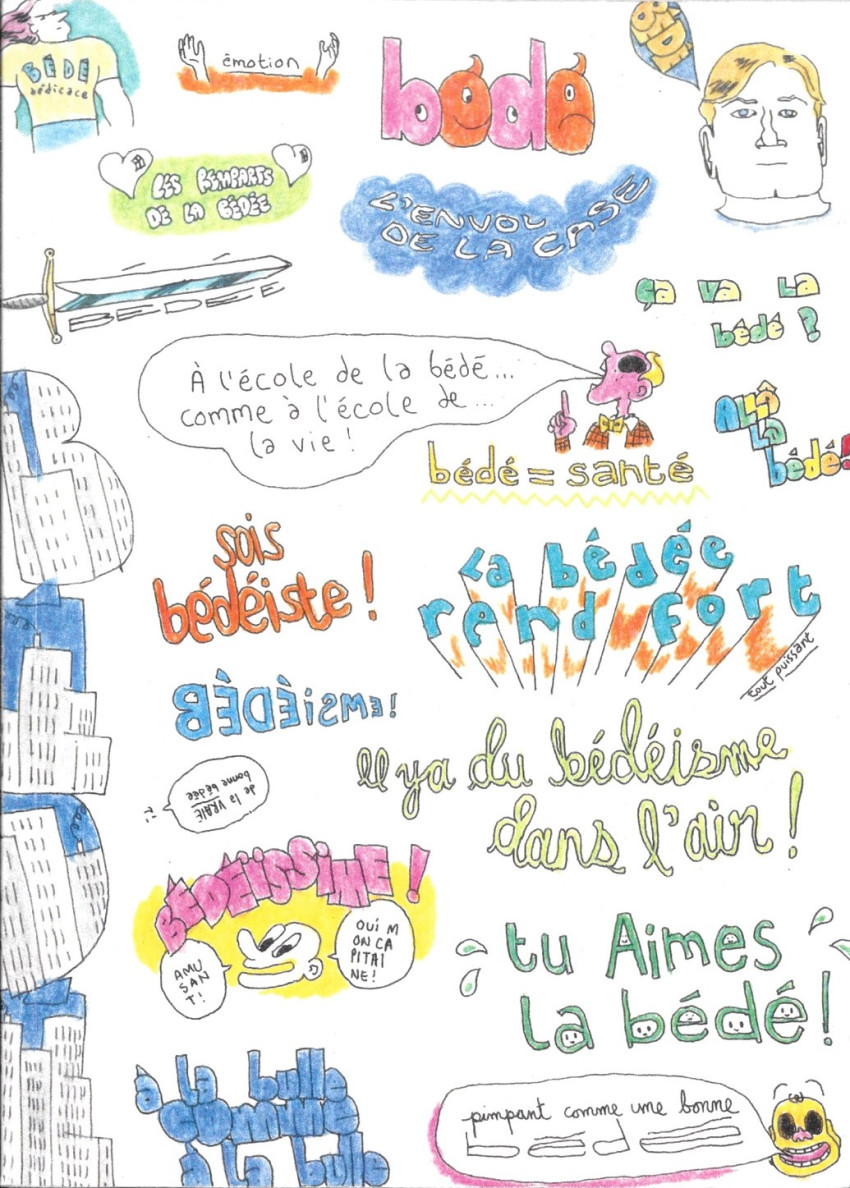 BÉDÉ
bédicace
émotion
bédé
BÉDÉ
LES REMPARTS
DE LA BÉDÉE
L'ENVOL
DE LA CASE
BÉDÉE
ça va la
bédé ?
À l'école de la bédé...
comme à l'école de...
la vie !
bédé = santé
ALLÔ
LA
bédé!
sois
bédéiste !
La bédée
rend fort
tout puissant
BÉDÉiSMe!
de la VRAIE
bonne bédée
Il y a du bédéisme
dans l'air !
BÉDÉiSSiME !
AMU
SAN
T!
OUI M
ON CA
PITAI
NE!
tu Aimes
la bédé !
à la bulle
comme
à la bulle
pimpant comme une bonne
bédée
BÉDÉ